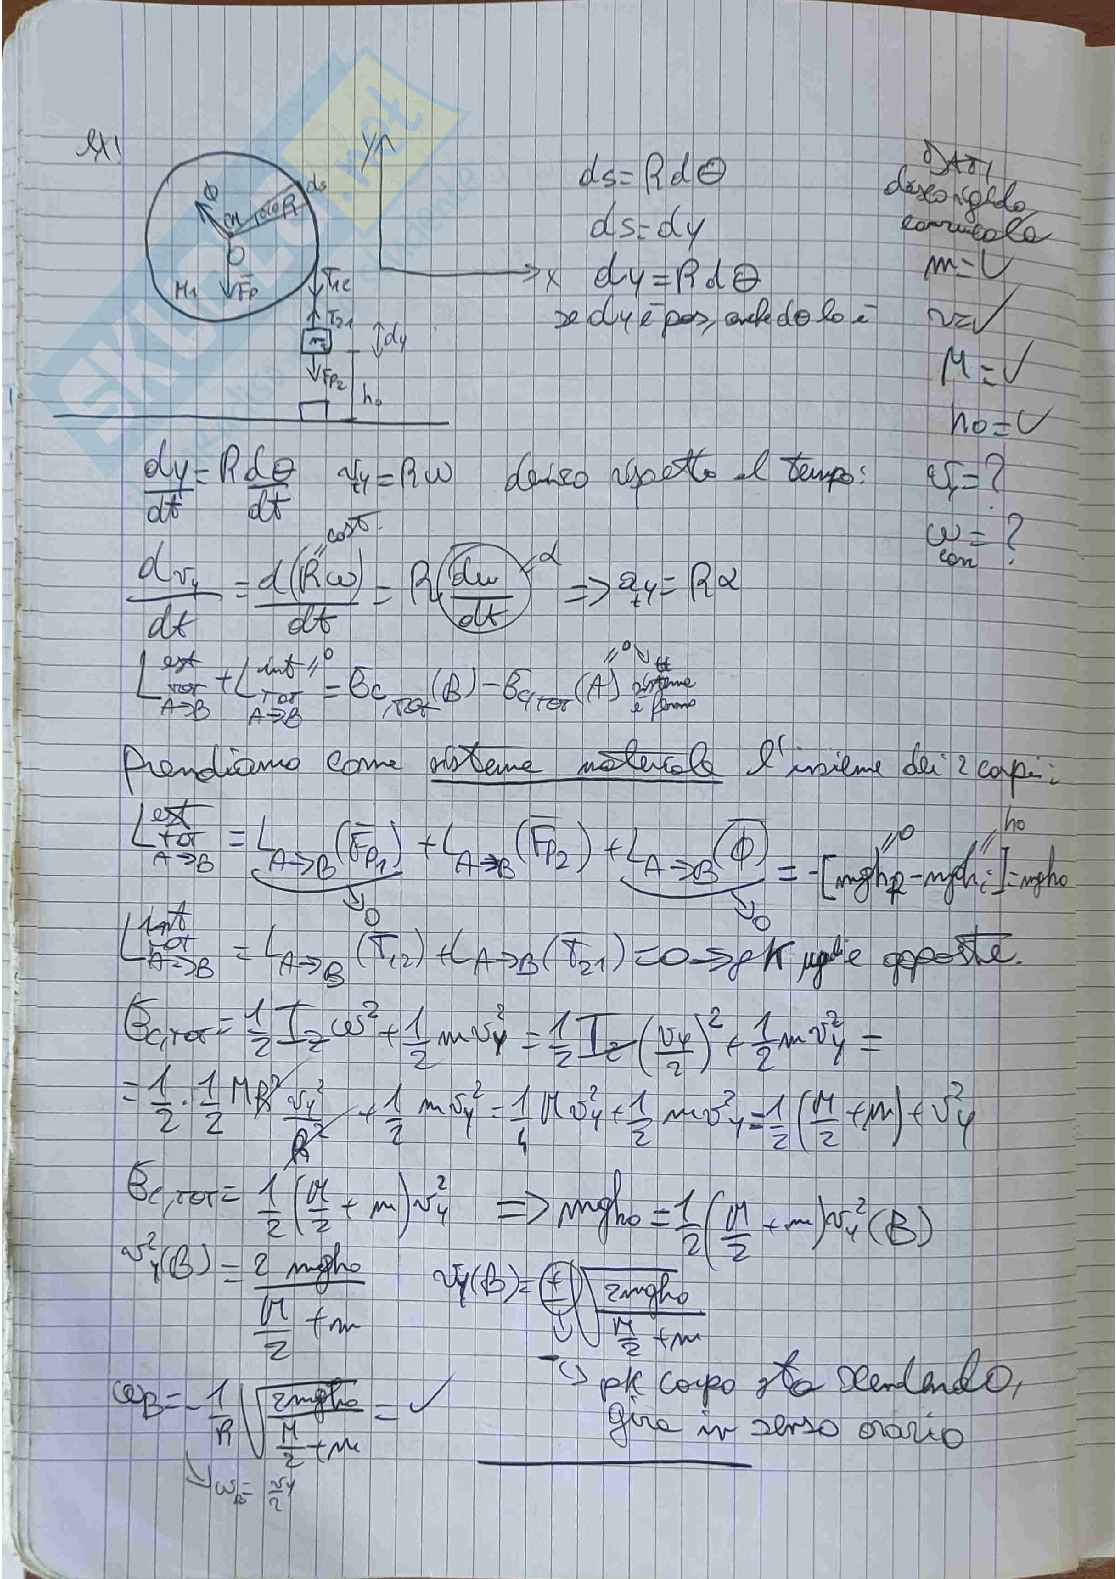 Ex1
y
x
O
R
ds
Φ
M₁
F̄p
T₂₁
m
dy
Fp₂
h₀
ds = R dθ
ds = dy
dy = R dθ
se dy è pos, anche dθ lo è
DATI
disco rigido
carrucola
m = ✓
r = ✓
M = ✓
h₀ = ✓
v_f = ?
ω = ?
dy/dt = R dθ/dt v_y = Rω derivo rispetto al tempo:
cost.
dv_y/dt = d(Rω)/dt = R (dω/dt) α => a_ty = Rα
L^est_tot A→B + L^int_tot A→B = 0 = Ec,tot(B) - Ec,tot(A) = 0 sistema è fermo
Prendiamo come sistema materiale l'insieme dei 2 corpi:
L^est_tot A→B = L A→B (F̄p₁) + L A→B (F̄p₂) + L A→B (Φ̄) = -[mgh_f - mgh_i] = mgh₀
0 0 =0 =h₀
L^int_tot A→B = L A→B (T̄₁₂) + L A→B (T̄₂₁) = 0 → pk uguali e opposte.
Ec,tot = 1/2 I_z ω² + 1/2 m v_y² = 1/2 I_z (v_y/2)² + 1/2 m v_y² =
= 1/2 · 1/2 MR² v_y²/R² + 1/2 m v_y² = 1/4 M v_y² + 1/2 m v_y² = 1/2 (M/2 + m) + v_y²
Ec,tot = 1/2 (M/2 + m) v_y² => mgh₀ = 1/2 (M/2 + m) v_y²(B)
v_y²(B) = 2 mgh₀ / (M/2 + m) v_y(B) = ± √(2mgh₀ / (M/2 + m))
- → pk corpo sta scendendo,
gira in senso orario
ω_B = - 1/R √(2mgh₀ / (M/2 + m)) = ✓
→ ω_B = v_y/2